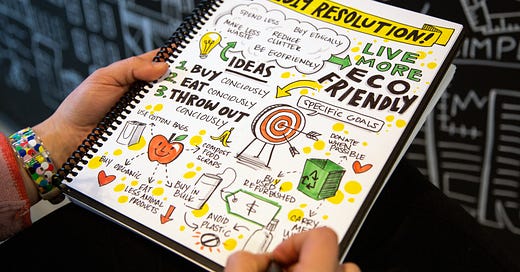 RESOLUTION!
SPEND LESS
BUY ETHICALLY
MAKE LESS
WASTE
REDUCE
CLUTTER
BE ECOFRIENDLY
LIVE
MORE
ECO
FRIENDLY
IDEAS
1. BUY CONCIOUSLY
2. EAT CONCIOUSLY
3. THROW OUT
CONCIOUSLY
SPECIFIC GOALS
USE COTTON BAGS
COMPOST
FOOD
DONATE
WHEN
POSSIBLE
BUY ORGANIC
EAT
LESS ANIMAL
PRODUCTS
BUY IN
BULK
BUY
REFURBISHED
AVOID
PLASTIC
CARRY